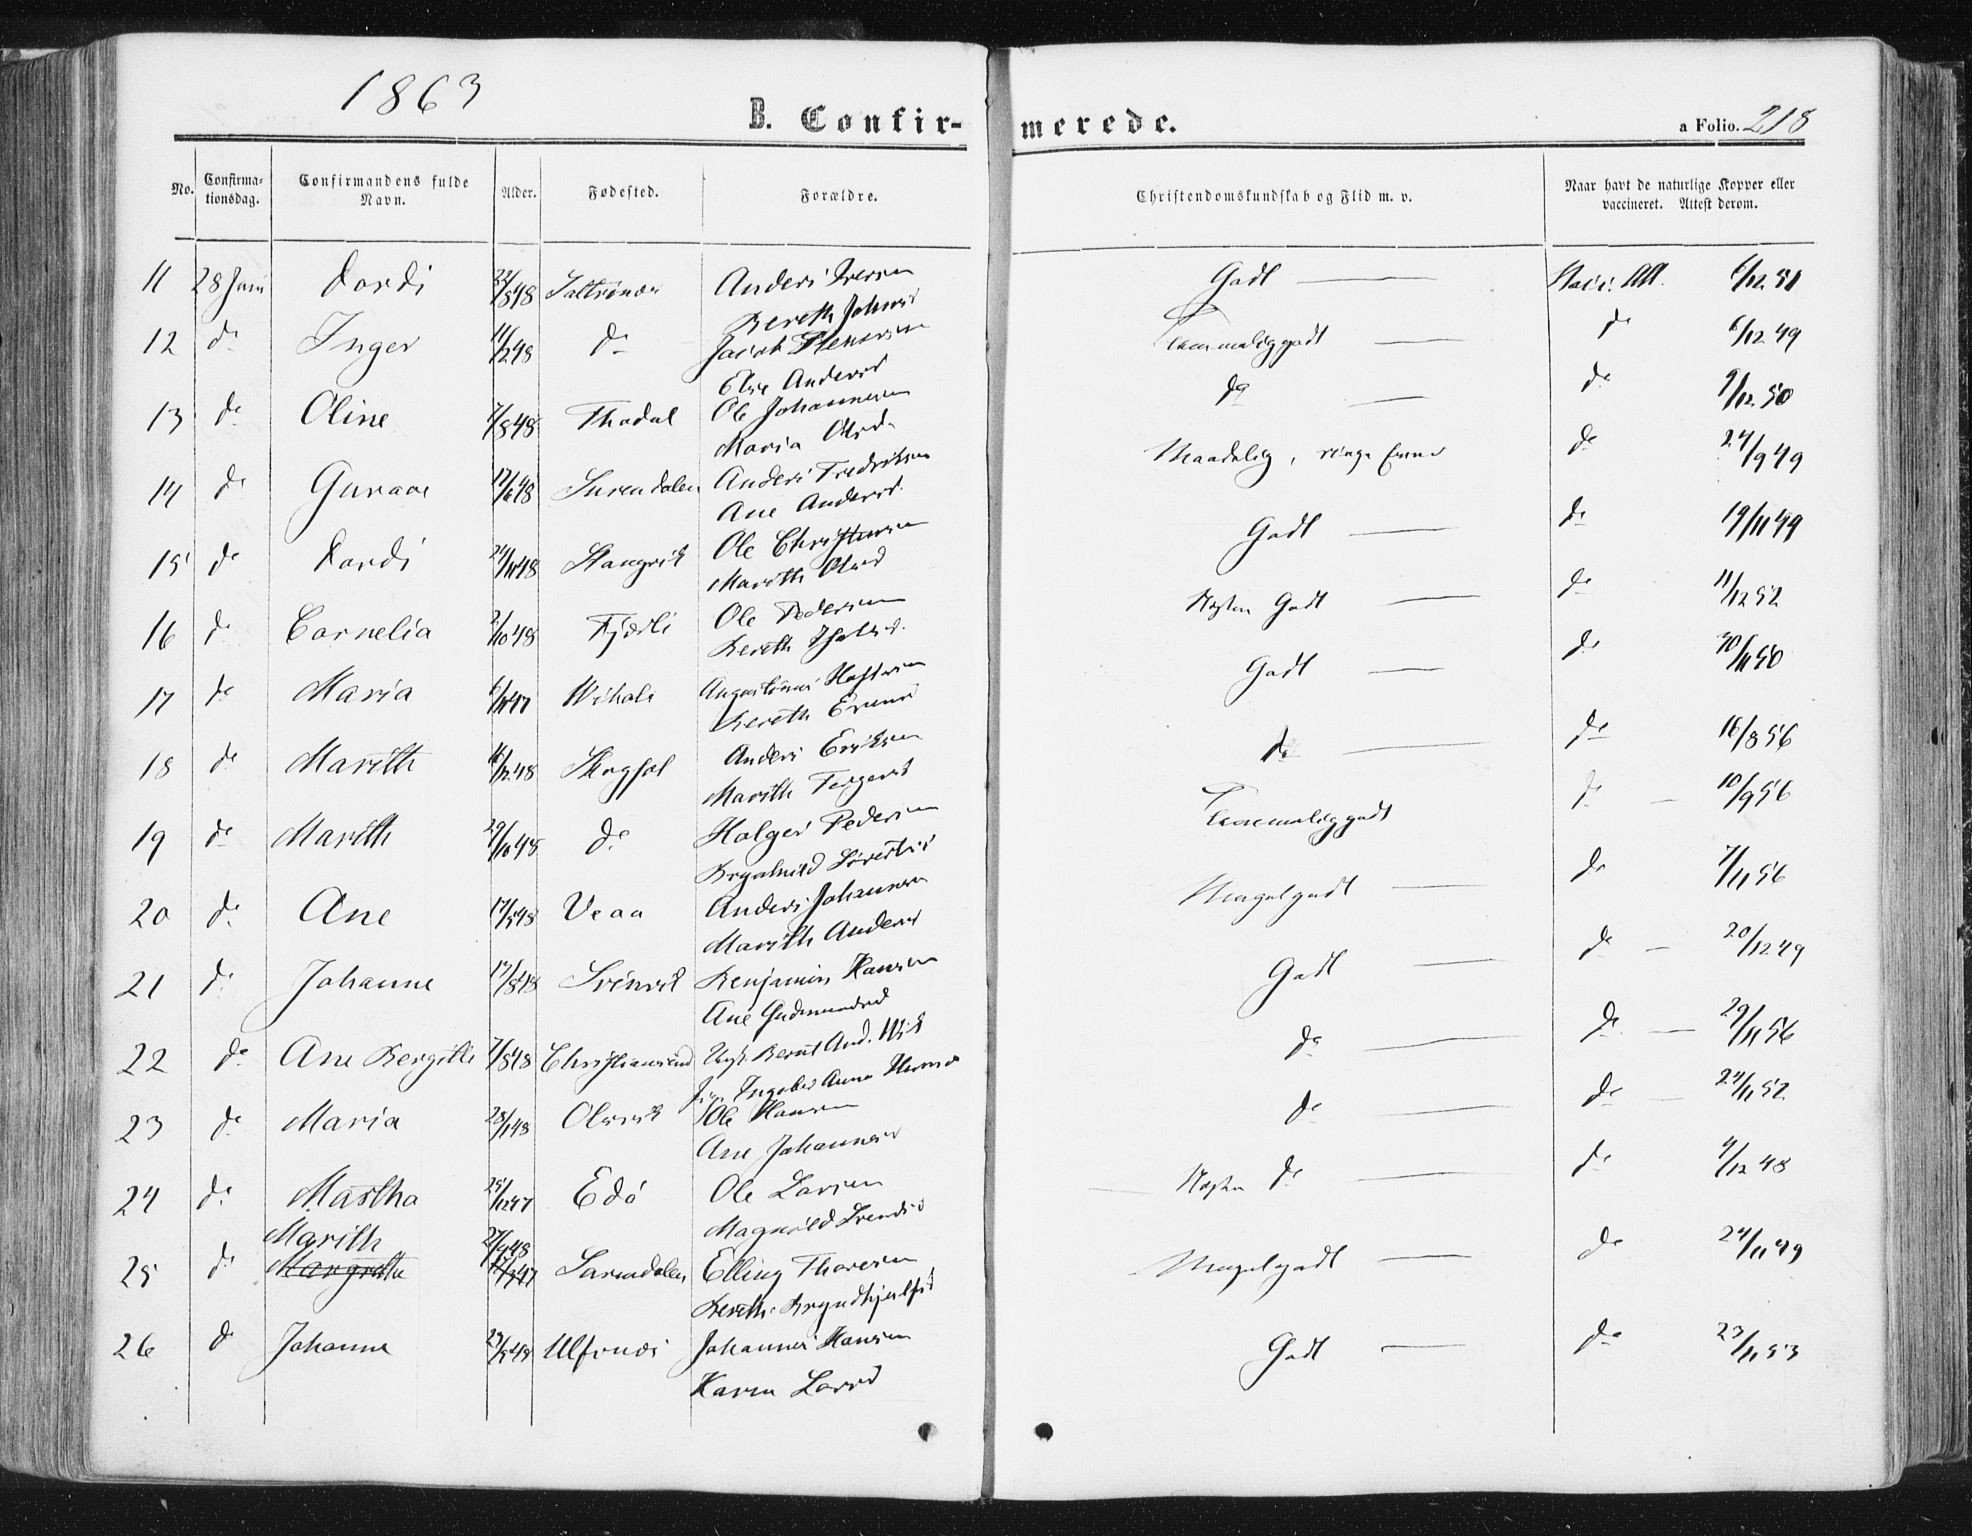 1863
B. Confirmerede.
a Folio. 218
No. Confirmationsdag. Confirmandens fulde Navn. Alder. Fødested. Forældre. Christendomskundskab og Flid m. v. Naar havt de naturlige Kopper eller vaccineret. Attest derom.
11 28 Juni Dordi 22/8 48 Anders Iversen Godt Att. 6/12 51
Bereth Johnsd
12 do Inger 11/2 48 do Jacob Temmelig godt do 6/12 49
Else Andersd
13 do Oline 7/8 48 Thodal Ole Johannesen do do 9/12 50
Maria Olsd
14 do Guraae 17/6 48 Surendalen Anders Fredriksen Maadelig, ringe Evner do 24/9 49
Ane Andersd
15 do Dordi 24/11 48 Stangvik Ole Christensen Godt do 19/11 49
Marith Olsd
16 do Cornelia 2/10 48 Fjærli Ole Pedersen Næsten Godt do 11/12 52
Bereth
17 do Maria 47 Augustinus Godt do 30/11 50
Bereth
18 do Marith 16/12 48 Skogset Anders Eriksen do do 16/8 56
Marith
19 do Marith 29/10 48 do Holger Pedersen Temmelig godt do 10/9 56
20 do Ane 17/5 48 Veaa Anders Johannesen Meget godt do 7/11 56
Marith Andersd
21 do Johanne 17/8 48 Svinvik Benjamin Hansen Godt do 20/12 49
Ane Gudmundsd
22 do Ane Bergitte 7/8 48 Christiansund Bernt And. Wik do do 29/11 56
Anna
23 do Maria 28/1 48 Olsvik Ole Hansen do do 24/11 52
Ane Johannesd
24 do Martha 25/12 47 Edø Ole Larsen Næsten do do 4/12 48
Magnild Svendsd
Marith 27/9 48
25 do Margrethe Surendalen Elling Thoresen Meget godt do 24/11 49
Bereth Bryndhjulfsd
26 do Johanne 29/5 48 Ulfsnæs Johannes Hansen Godt do 23/11 53
Karen Larsd